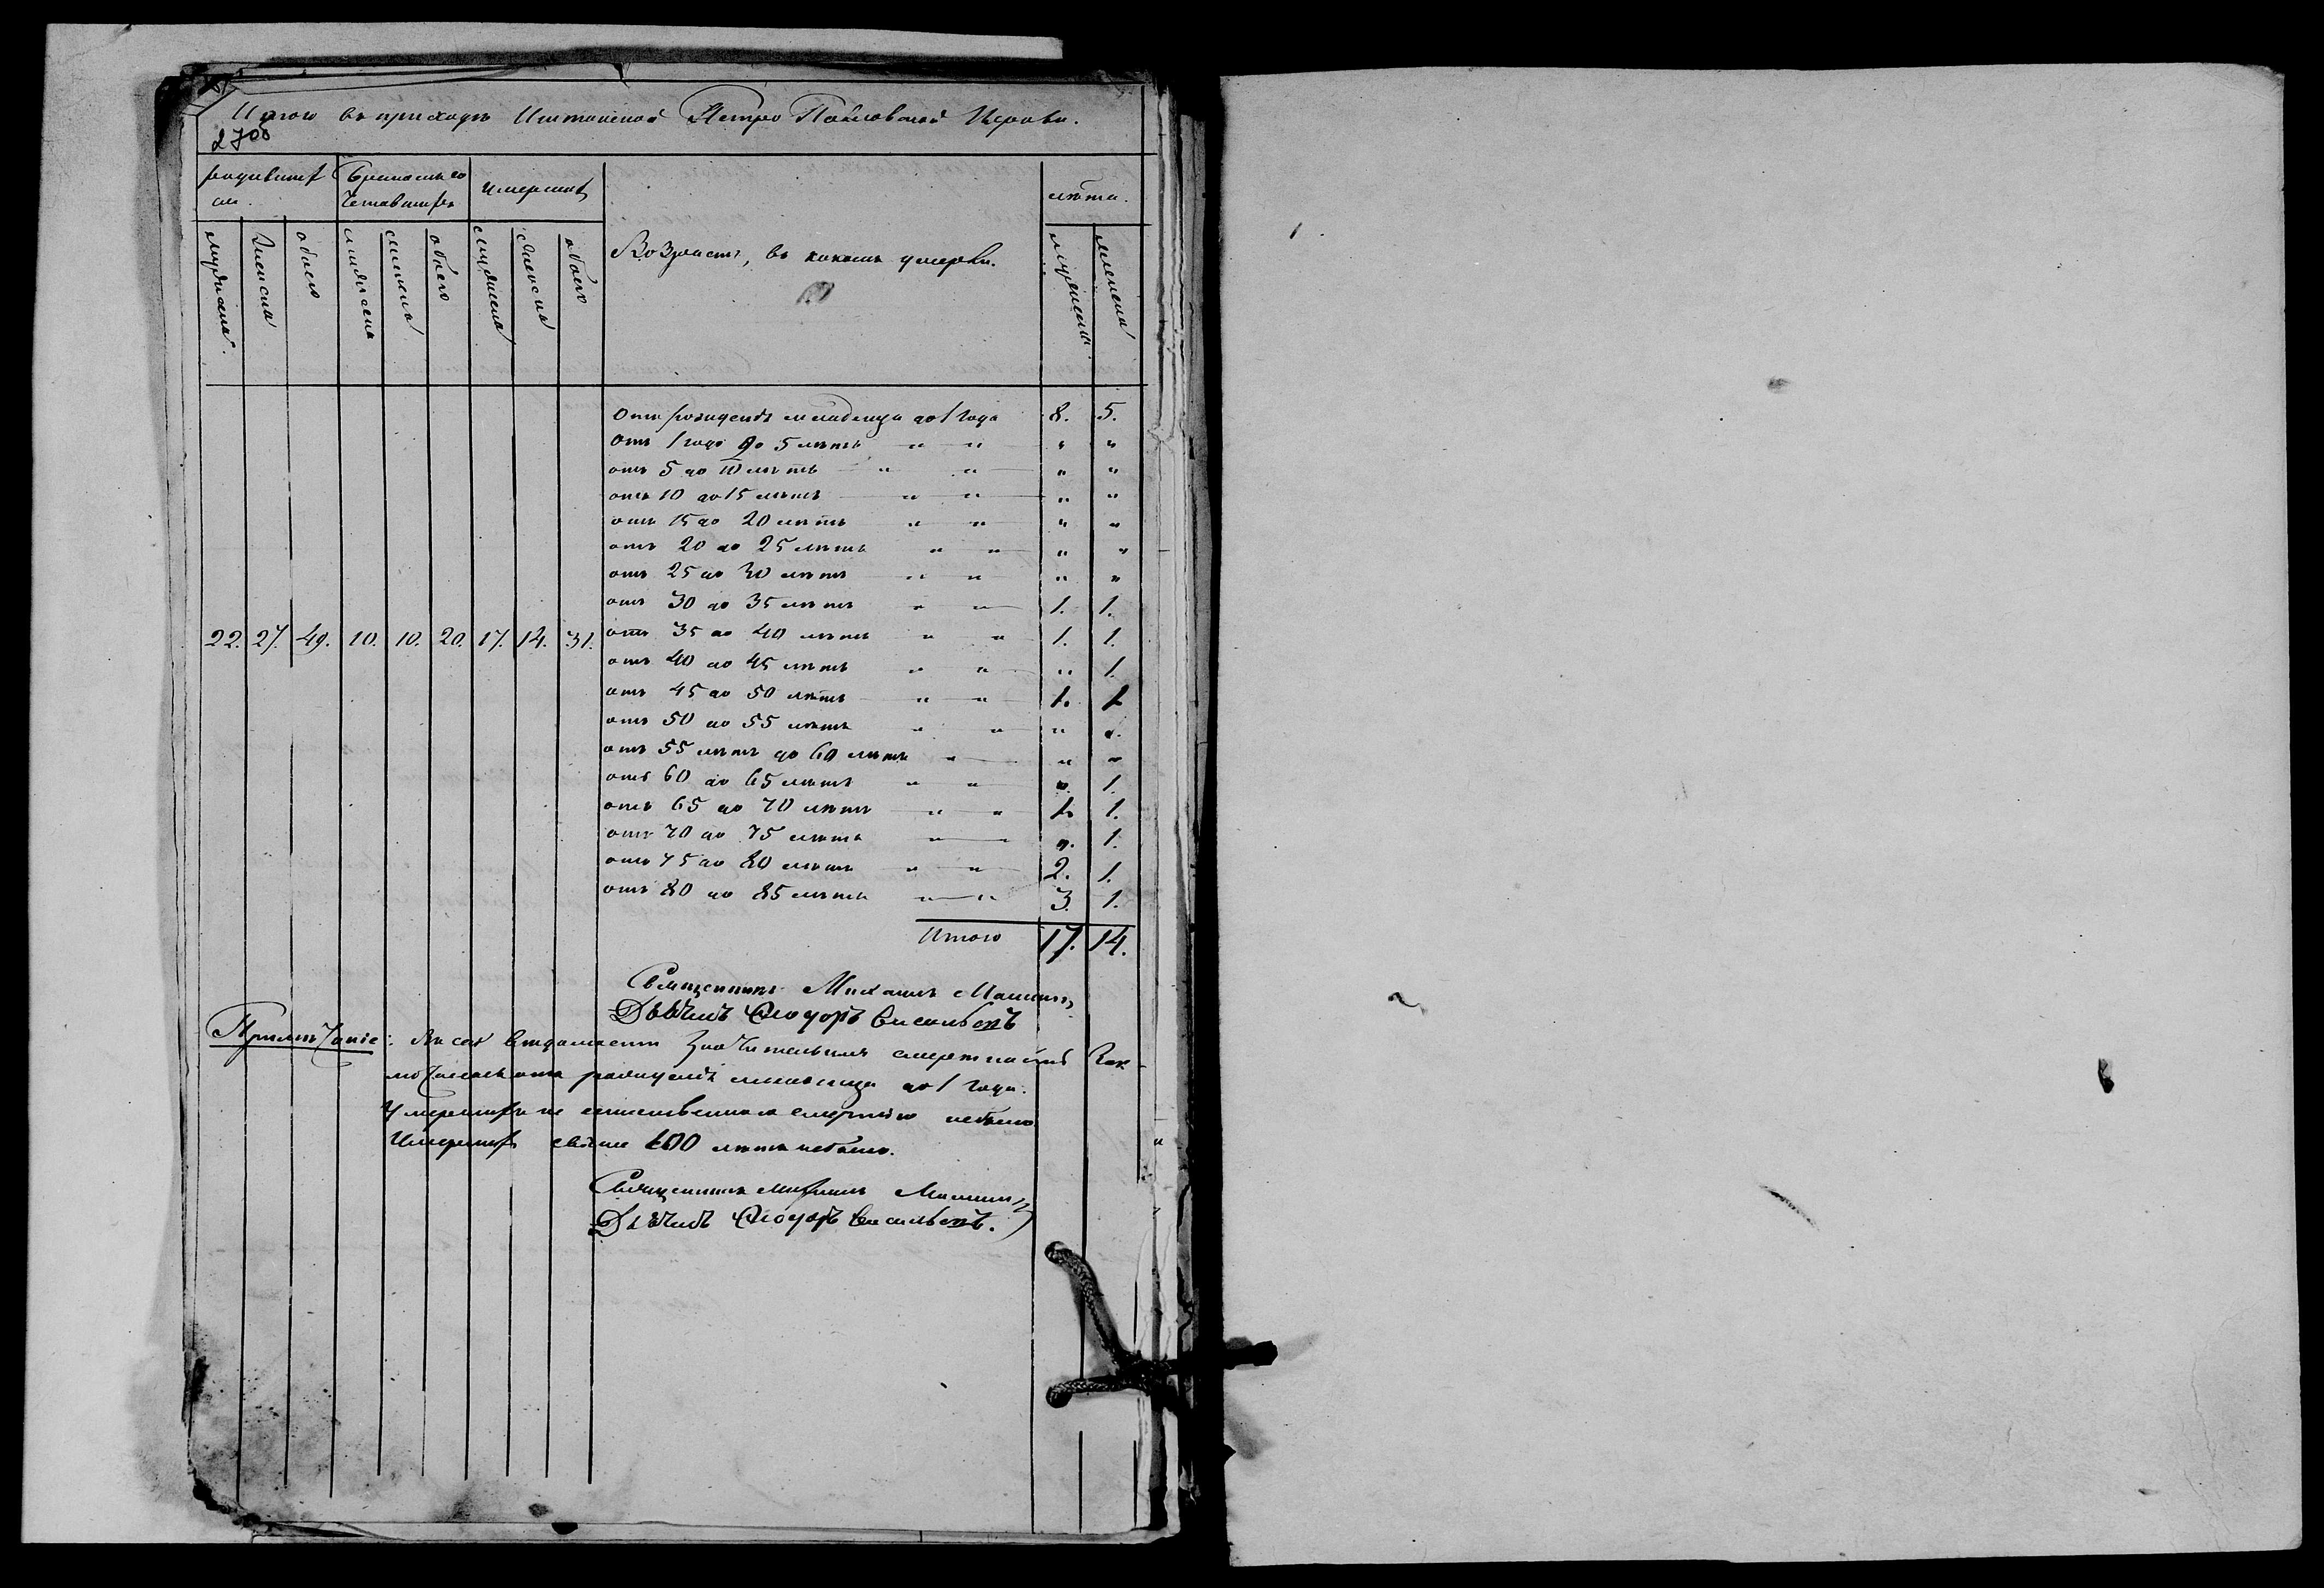 Итого въ приходѣ Петро Павловской Церкви.
2700
родивших
ся.
Бракосо
четавшихъ
Умершихъ
лѣта.
мужеска.
женска
обоего
мужеска
женска
обоего
мужеска
женска
обоего
Возрастъ, въ какомъ умерли.
мужеска.
женска
отъ рожденія младенца до 1 года 8. 5.
отъ 1 года до 5 лѣтъ " " " "
отъ 5 до 10 лѣтъ " " " "
отъ 10 до 15 лѣтъ " " " "
отъ 15 до 20 лѣтъ " " " "
отъ 20 до 25 лѣтъ " " " "
отъ 25 до 30 лѣтъ " " " "
отъ 30 до 35 лѣтъ " " 1. 1.
22. 27. 49. 10. 10. 20. 17. 14. 31. отъ 35 до 40 лѣтъ " " 1. 1.
отъ 40 до 45 лѣтъ " " " 1.
отъ 45 до 50 лѣтъ " " 1. 1
отъ 50 до 55 лѣтъ " " " "
отъ 55 лѣтъ до 60 лѣтъ " " "
отъ 60 до 65 лѣтъ " " " 1.
отъ 65 до 70 лѣтъ " " 1. 1.
отъ 70 до 75 лѣтъ " " " 1.
отъ 75 до 80 лѣтъ " " 2. 1.
отъ 80 до 85 лѣтъ " " 3. 1.
Итого 17. 14.
Священникъ Михаилъ
Дьячекъ Ѳеодоръ Васильевъ
Примѣчаніе: значительная смертность
рожденія младенца до 1 года.
Умершихъ не естественною смертію небыло
Умершихъ свыше 100 лѣтъ небыло.
Священникъ Михаилъ
Дьячекъ Ѳеодоръ Васильевъ.